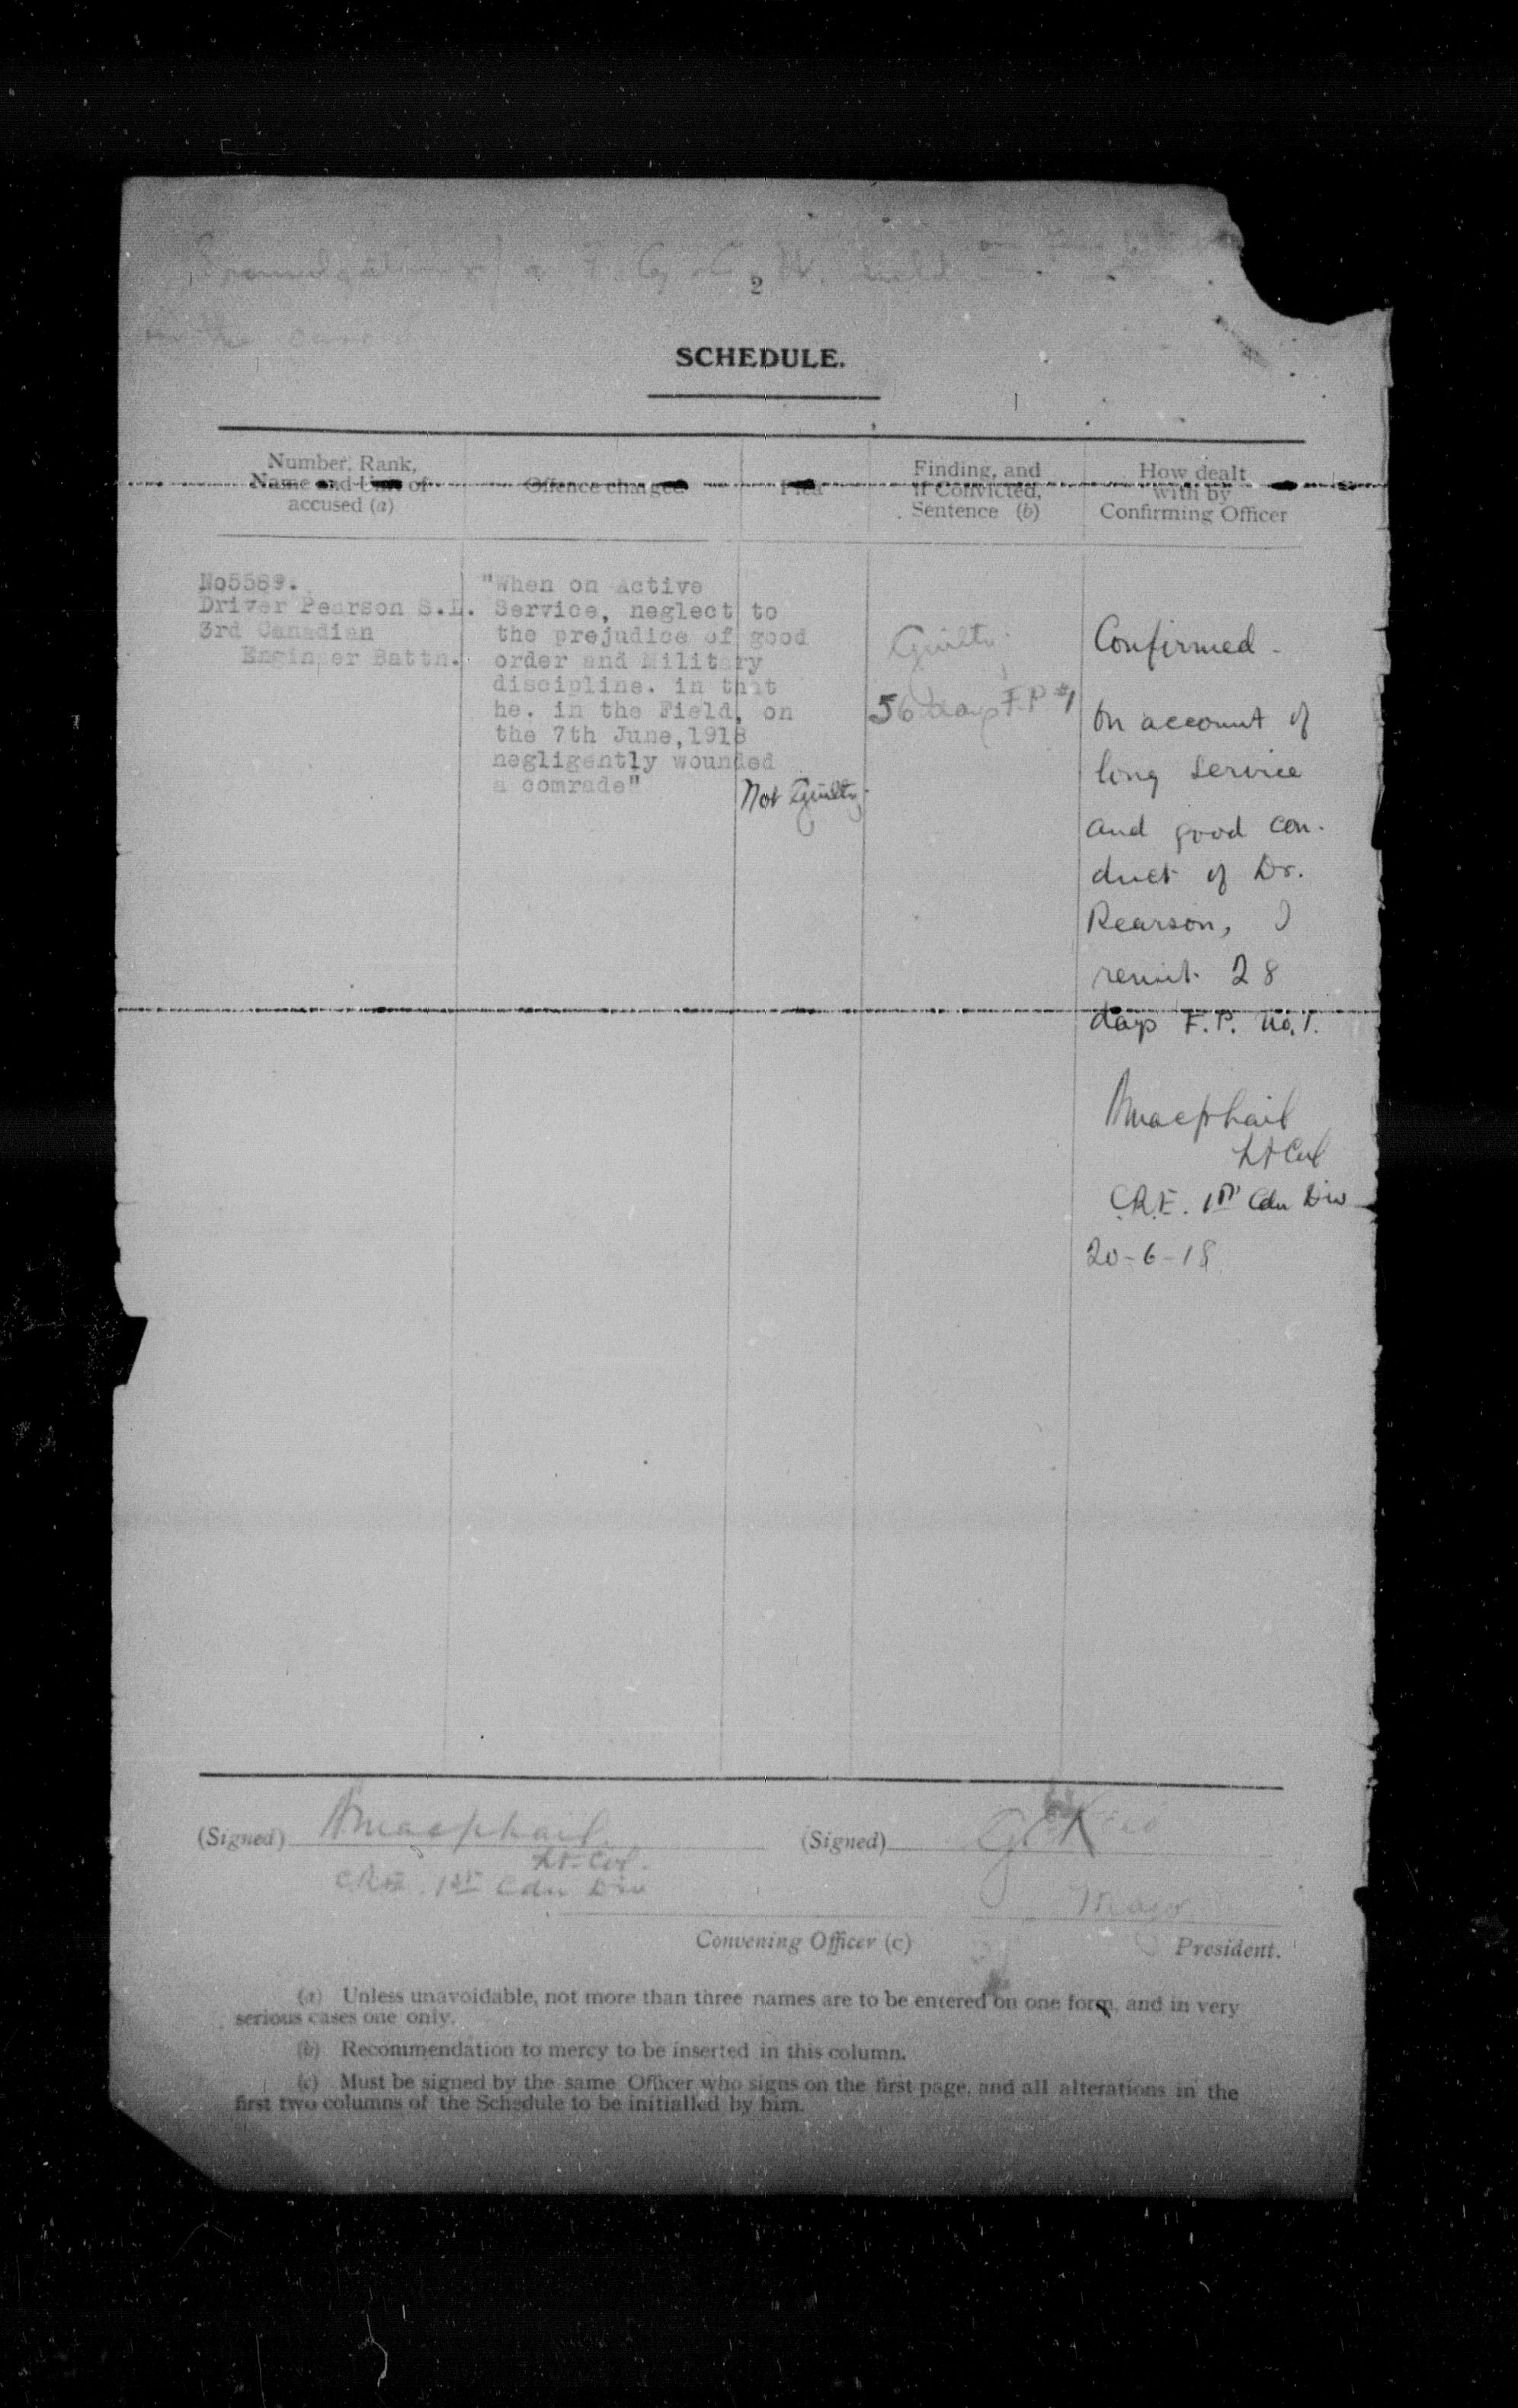 2
SCHEDULE.
Number, Rank,
Name and Unit of
accused (a)
Offence charged
Plea
Finding, and
if Convicted,
Sentence (b)
How dealt
with by
Confirming Officer
No5589.
Driver Pearson S.L.
3rd Canadian
Engineer Battn.
"When on Active
Service, neglect to
the prejudice of good
order and Military
discipline. in that
he. in the Field, on
the 7th June,1918
negligently wounded
a comrade"
Not Guilty.
Guilty.
56 days F.P #1
Confirmed -
On account of
long service
and good con-
duct of Dr.
Pearson, I
remit 28
days F.P. No.1.
Amacphail
Lt Col
C.R.E. 1st Cdn Div
20-6-18
(Signed) Amacphail
Lt-Col.
CRE. 1st Cdn Div
Convening Officer (c)
(Signed)
Major
President.
(a) Unless unavoidable, not more than three names are to be entered on one form, and in very
serious cases one only.
(b) Recommendation to mercy to be inserted in this column.
(c) Must be signed by the same Officer who signs on the first page, and all alterations in the
first two columns of the Schedule to be initialled by him.